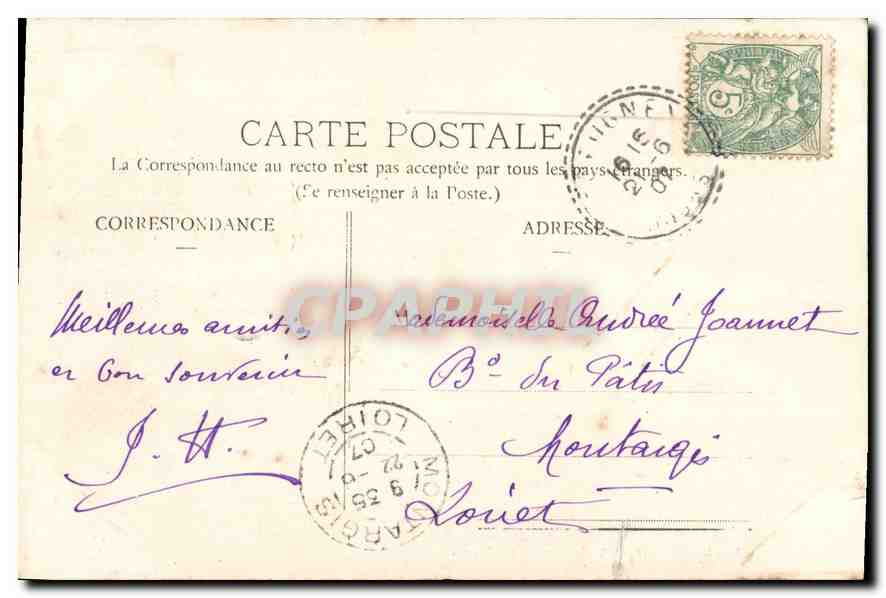 CARTE POSTALE
La Correspondance au recto n'est pas acceptée par tous les pays étrangers.
(Se renseigner à la Poste.)
CORRESPONDANCE
ADRESSE
Meilleures amitiés
et bon souvenir
J. H.
Mademoiselle Andrée Joannet
Bd du Pâtis
Montargis
Loiret
CPARHII
5c
16
21 -6
07
MONTARGIS
9 35
22 -6
07
LOIRET